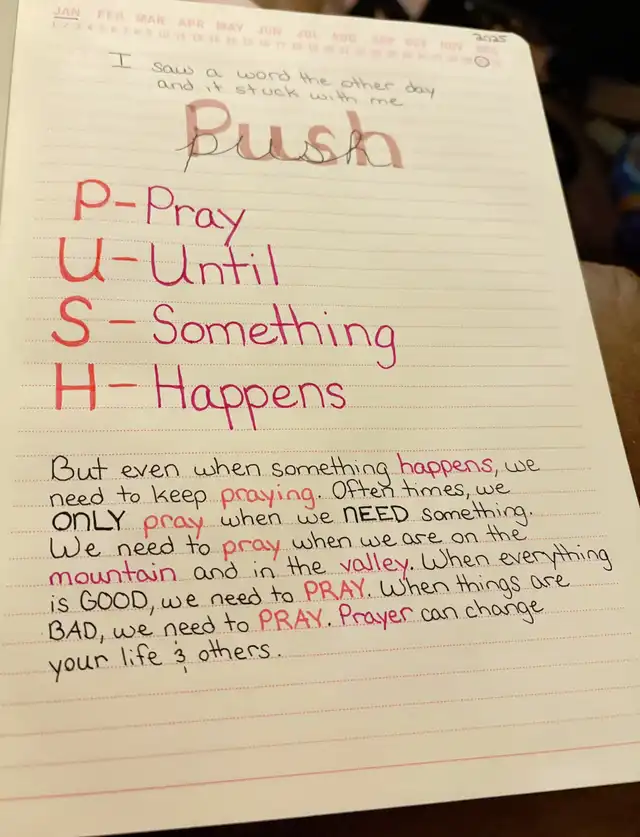 JAN FEB MAR APR MAY JUN JUL AUG SEP OCT NOV DEC
2025
I saw a word the other day
and it stuck with me
Push
push
P-Pray
U-Until
S-Something
H-Happens
But even when something happens, we
need to keep praying. Often times, we
ONLY pray when we NEED something.
We need to pray when we are on the
mountain and in the valley. When everything
is GOOD, we need to PRAY. When things are
BAD, we need to PRAY. Prayer can change
your life & others.